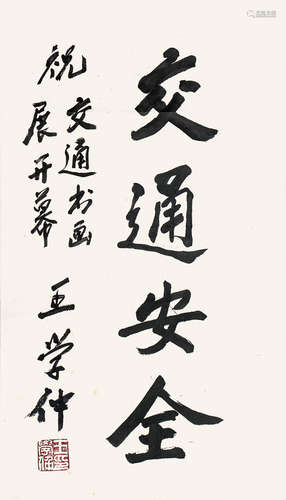 交通安全
祝
交通书画
展开幕
王学仲